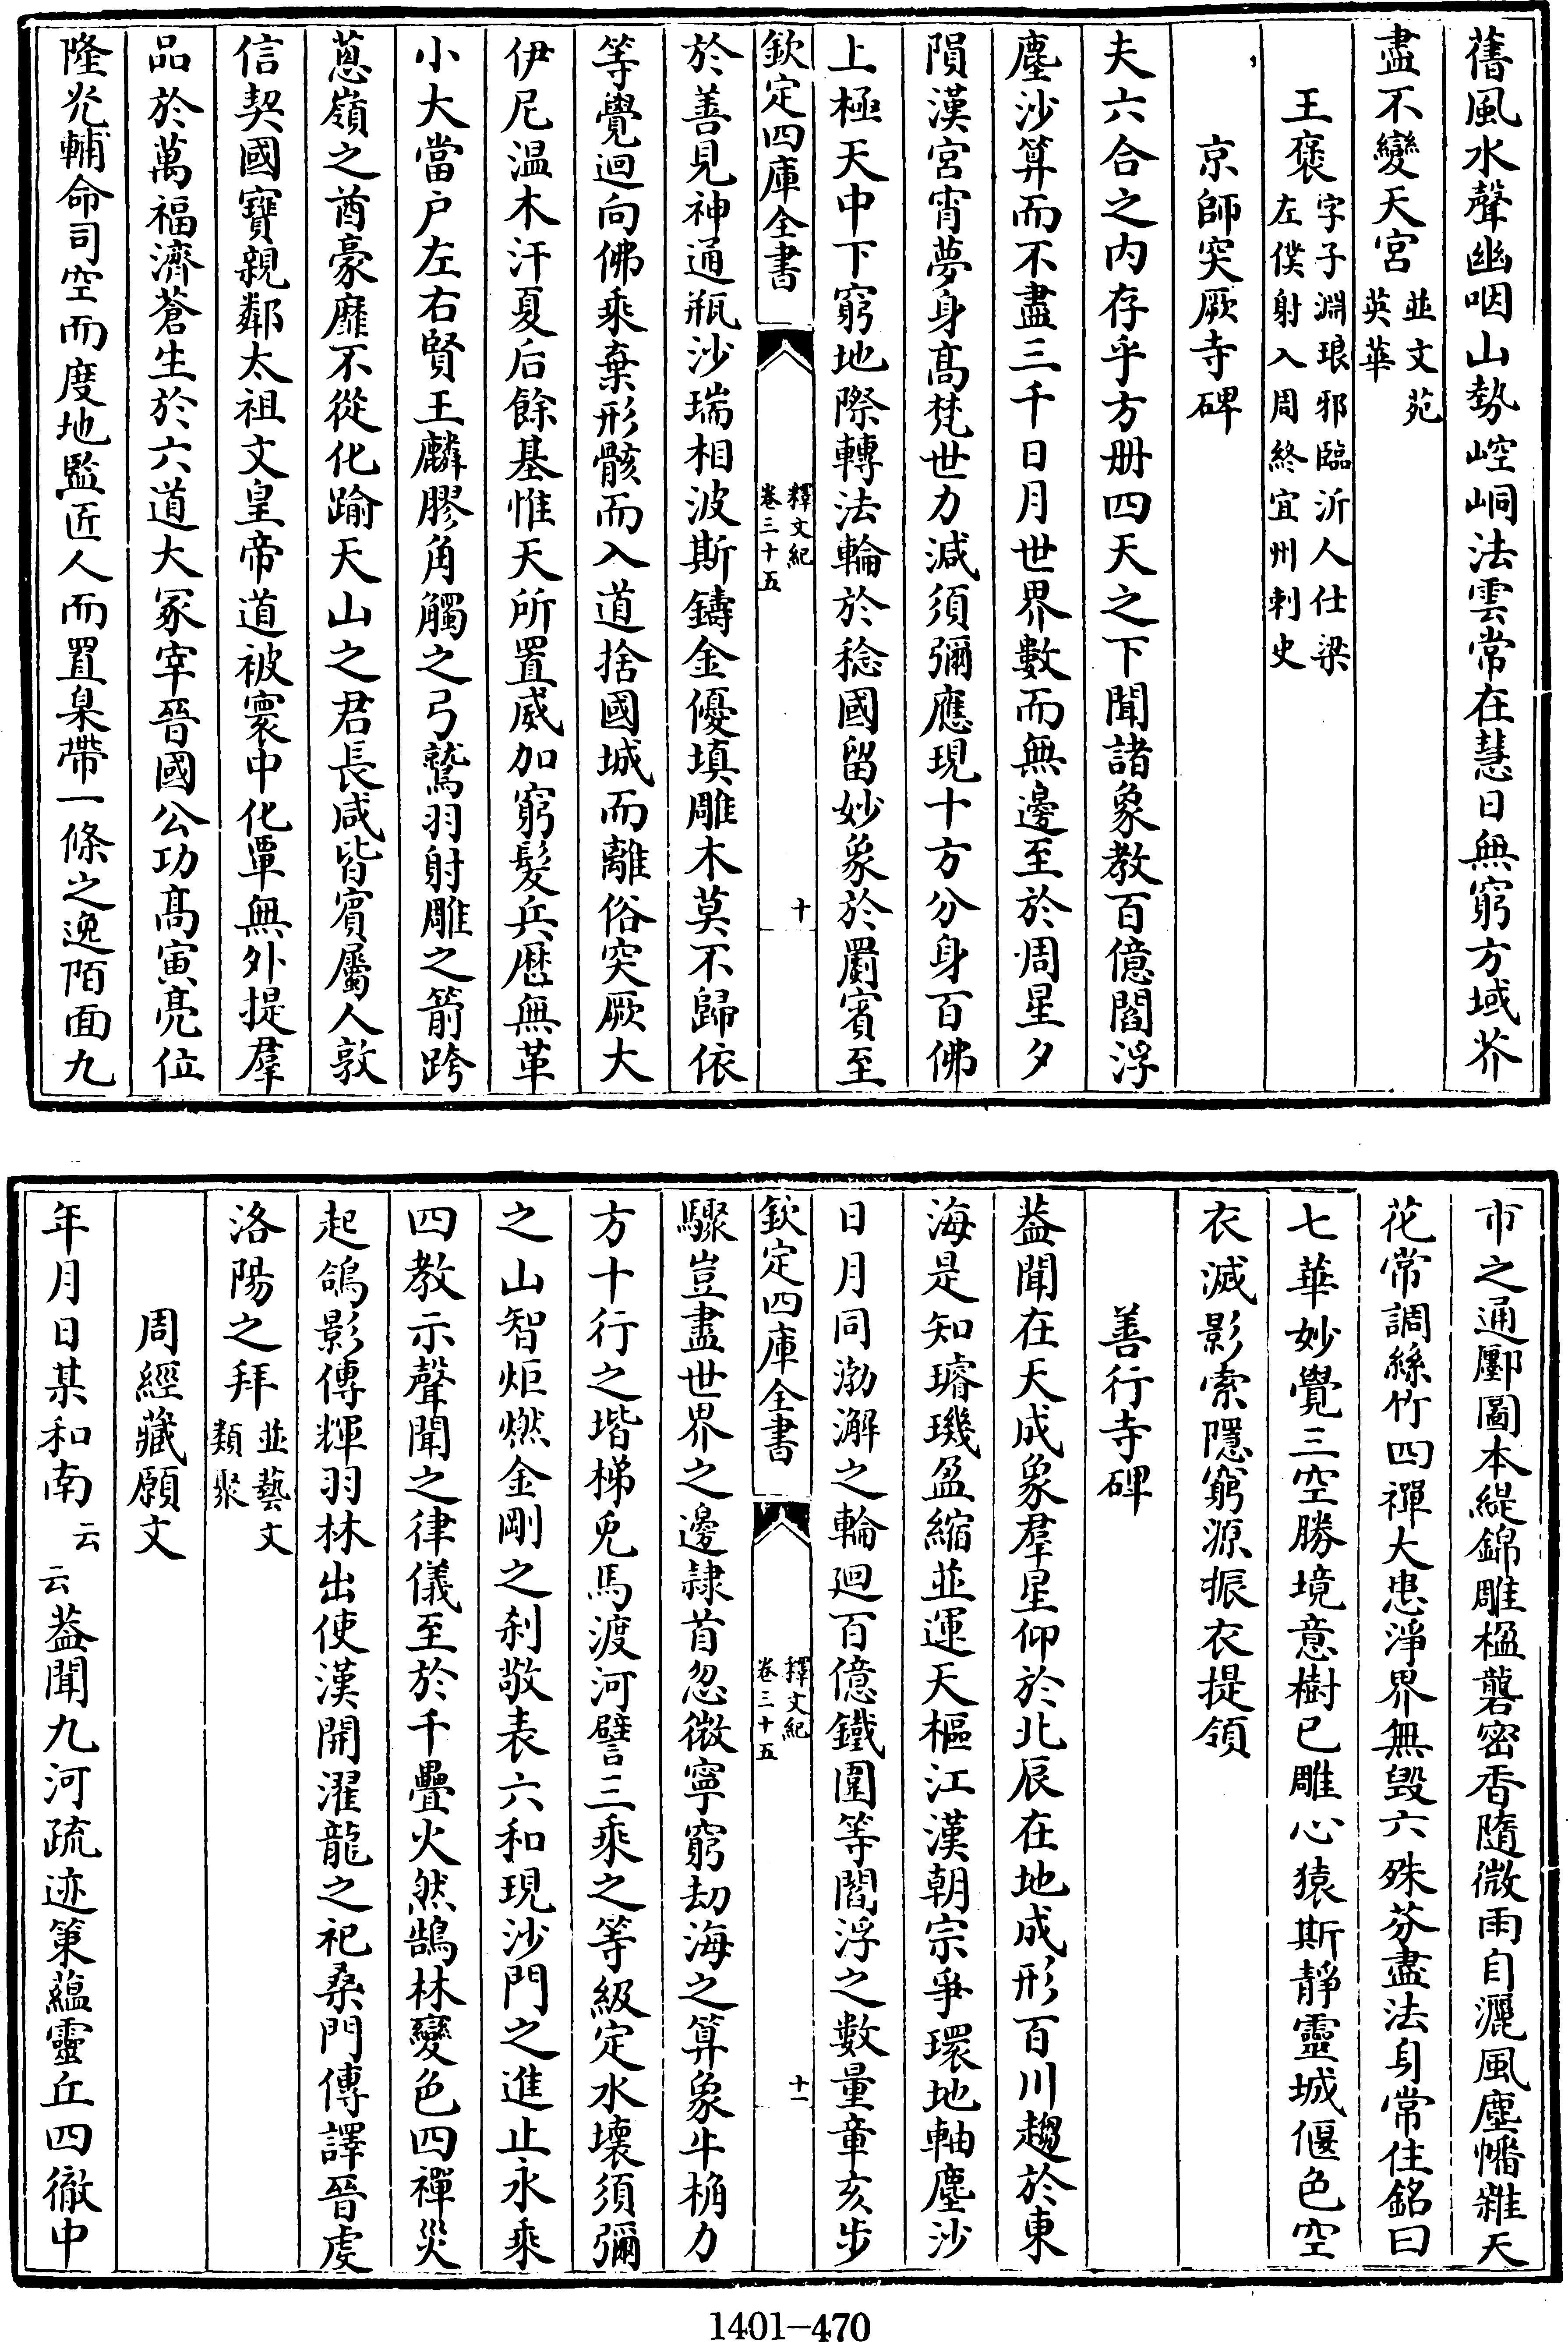 舊風水聲幽咽山勢崆峒法雲常在慧日無窮方域芥
盡不變天宮並文苑英華
王褒字子淵琅邪臨沂人仕梁左僕射入周終宜州刺史
京師突厥寺碑
夫六合之内存乎方冊四天之下聞諸象教百億閻浮
塵沙算而不盡三千日月世界數而無邊至於周星夕
隕漢宮宵夢身髙梵世力減須彌應現十方分身百佛
上極天中下窮地際轉法輪於稔國留妙象於罽賓至
欽定四庫全書
釋文紀
卷三十五
十
於善見神通瓶沙瑞相波斯鑄金優填雕木莫不歸依
等覺迴向佛乘棄形骸而入道捨國城而離俗突厥大
伊尼温木汗夏后餘基惟天所置威加窮髮兵歴無革
小大當户左右賢王麟膠角觸之弓鷲羽射雕之箭跨
蔥嶺之酋豪靡不從化踰天山之君長咸皆賓屬人敦
信契國寶親鄰太祖文皇帝道被寰中化覃無外提羣
品於萬福濟蒼生於六道大冢宰晉國公功髙寅亮位
隆光輔命司空而度地監匠人而置臬帶一條之逸陌面九
市之通鄽圖本緹錦雕楹礱密香隨微雨自灑風塵幡雜天
花常調絲竹四禪大患淨界無毁六殊芬盡法身常住銘曰
七華妙覺三空勝境意樹已雕心猿斯靜靈城偃色空
衣滅影索隱窮源振衣提領
善行寺碑
葢聞在天成象羣星仰於北辰在地成形百川趨於東
海是知璿璣盈縮並運天樞江漢朝宗爭環地軸塵沙
日月同渤澥之輪廻百億鐵圍等閻浮之數量章亥步
欽定四庫全書
釋文紀
卷三十五
十一
驟豈盡世界之邊隷首忽微寧窮劫海之算象牛桷力
方十行之堦梯兎馬渡河譬三乘之等級定水壞須彌
之山智炬燃金剛之刹敬表六和現沙門之進止永乘
四教示聲聞之律儀至於千疊火然鵠林變色四禪災
起鴿影傳輝羽林出使漢開濯龍之祀桑門傳譯晉虔
洛陽之拜並藝文類聚
周經藏願文
年月日某和南云云葢聞九河疏迹策藴靈丘四徹中
1401–470